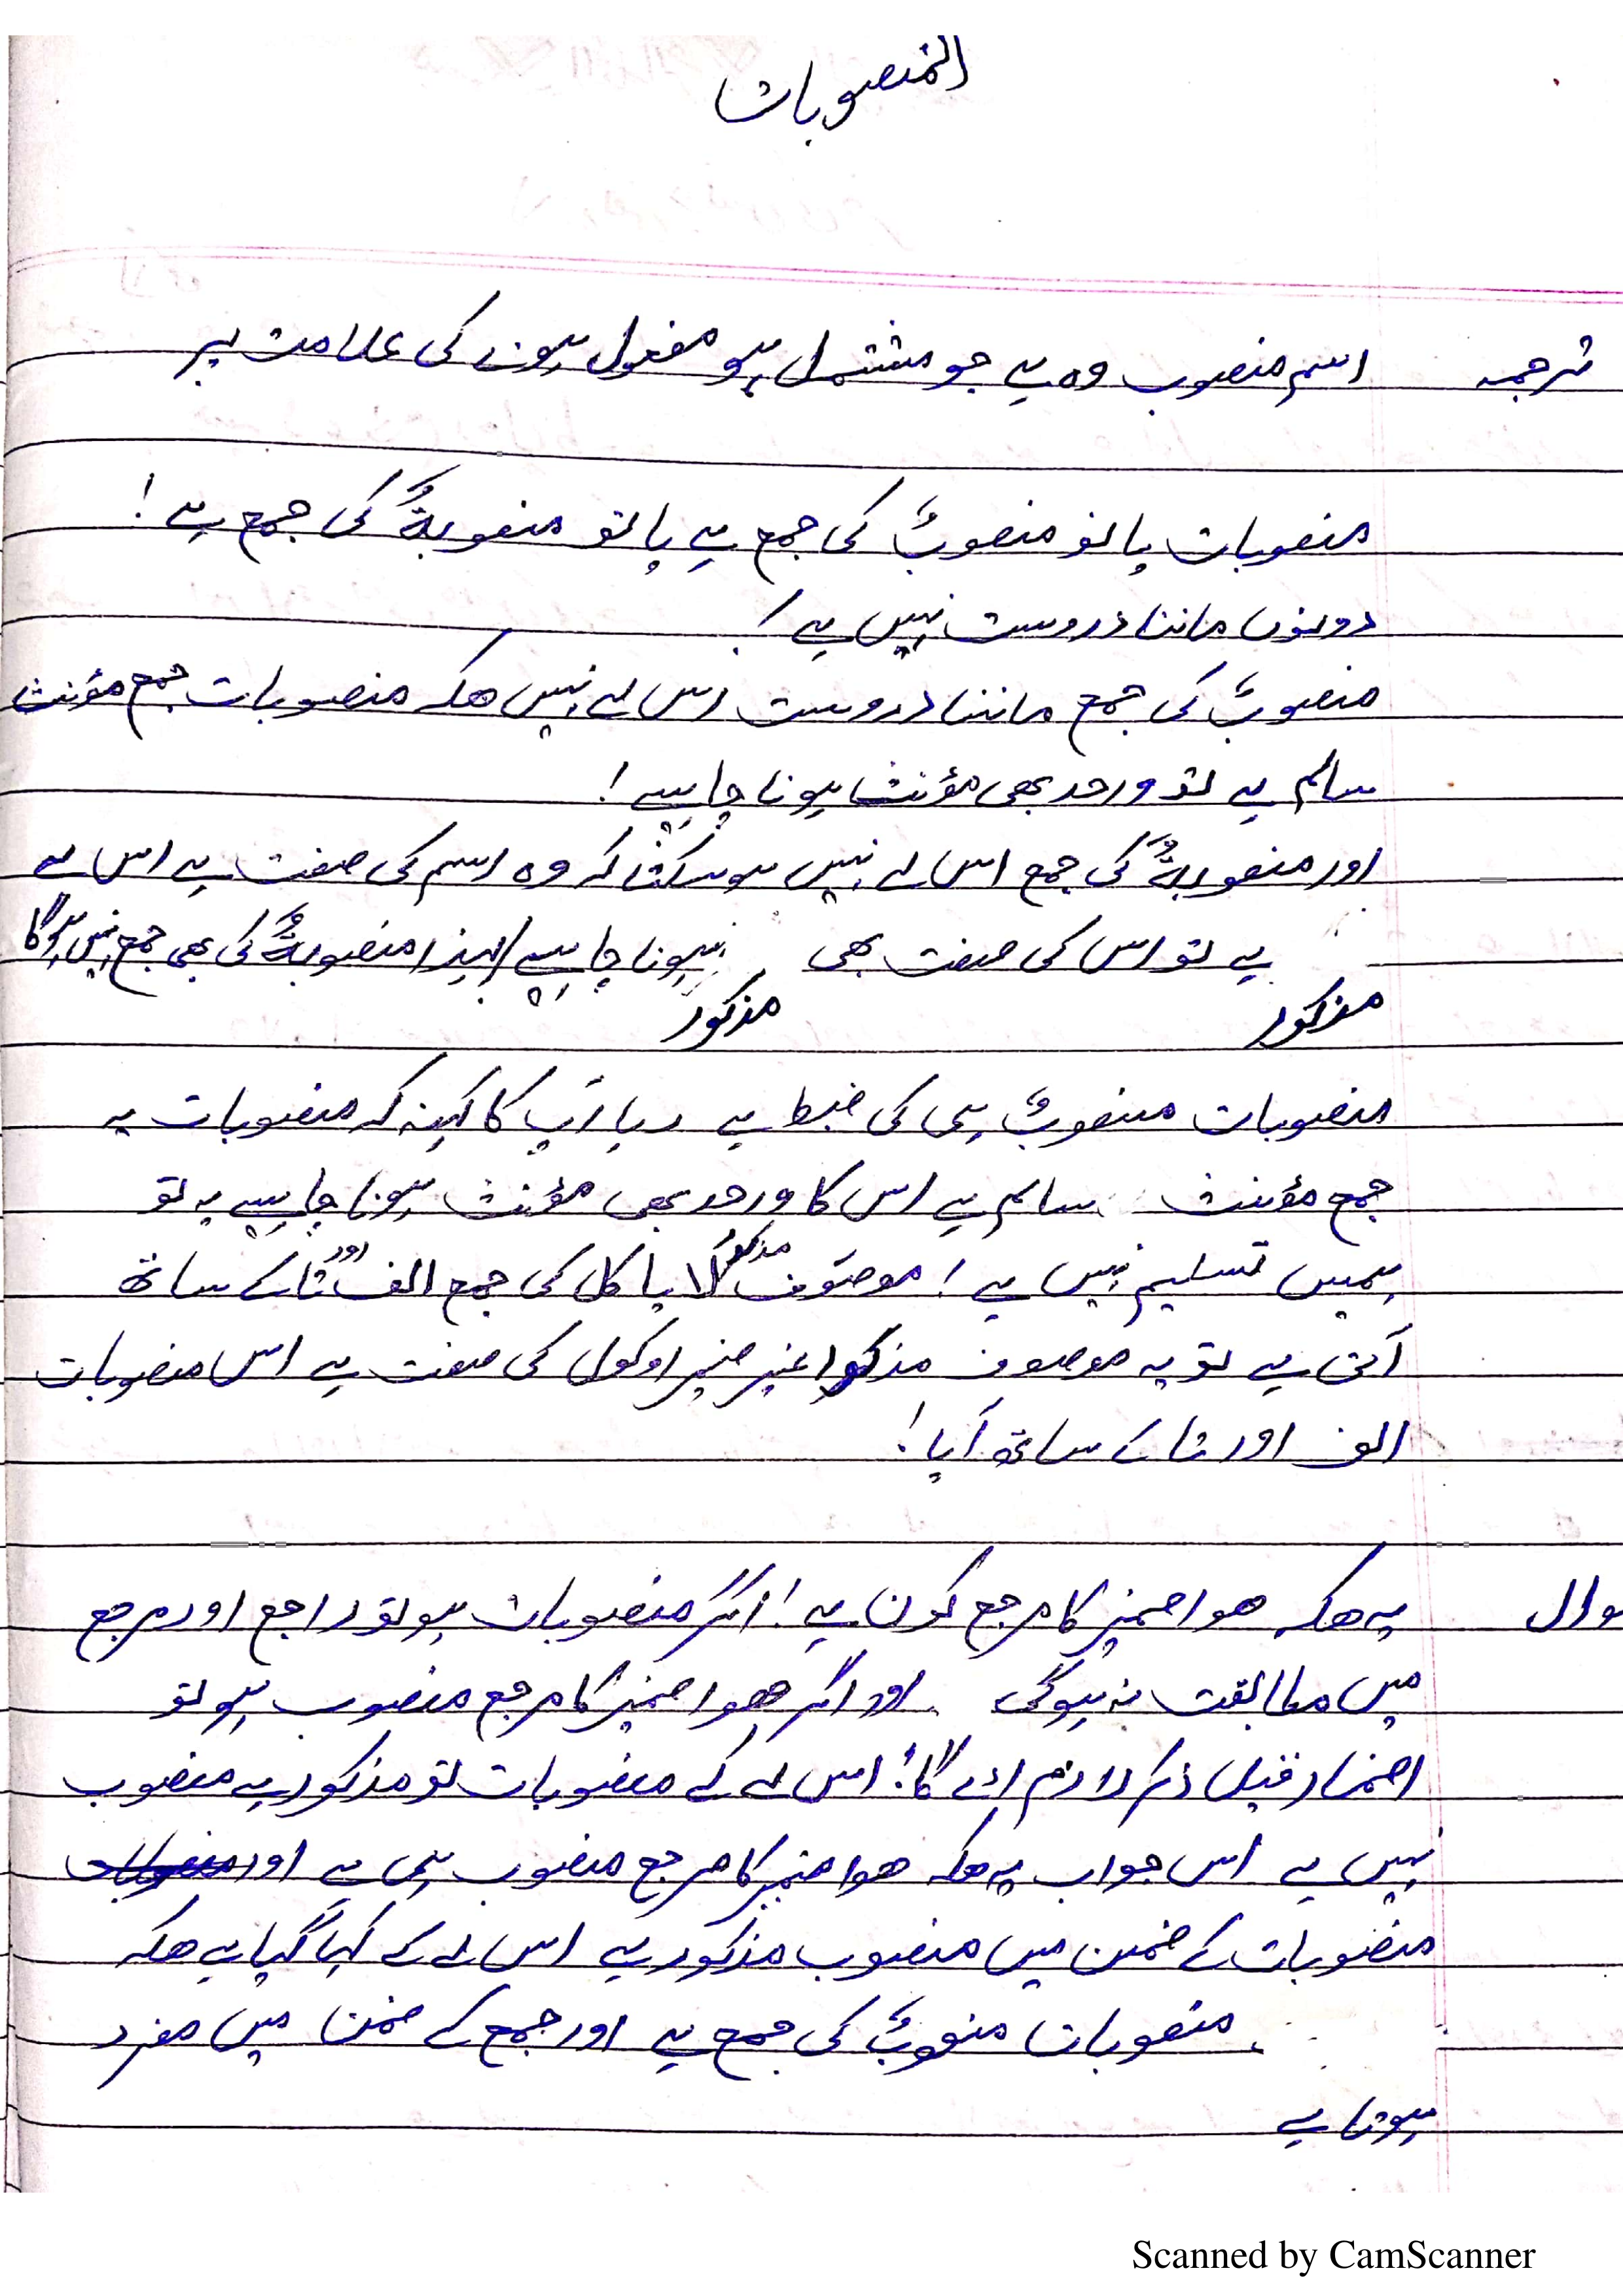 المنصوبات
ترجمہ اسم منصوب وہ ہے جو مشتمل ہو مفعول ہونے کی علامت پر
منصوبات یا تو منصوبٌ کی جمع ہے یا تو منصوبةٌ کی جمع ہے!
دونوں ماننا دروست نہیں ہے!
منصوبٌ کی جمع ماننا دروست اس لے نہیں ھکہ منصوبات جمع مؤنث
سالم ہے تو واحد بھی مؤنث ہونا چاہیے!
اور منصوبةٌ کی جمع اس لے نہیں ہو سکتا کہ وہ اسم کی صفت ہے اس لے
ہے تو اس کی صفت بھی ہونا چاہیے لہذا منصوبةٌ کی بھی جمع نہیں ہوگا
مذکور مذکور
منصوبات منصوبٌ ہی کی ہے رہا آپ کا کہنہ کہ منصوبات یہ
جمع مؤنث سالم ہے اس کا واحد بھی مؤنث ہونا چاہیے یہ تو
ہمیں تسلیم نہیں ہے! موصوف مذکور لا یا کل کی جمع الف اور تا کے ساتھ
آتی ہے تو یہ موصوف مذکور کی صفت ہے اس منصوبات
الف اور تا کے ساتھ آیا!
سوال یہ ھکہ ھوا ضمیر کا مرجع کون ہے! اگر منصوبات ہو تو راجع اور مرجع
میں مطابقت نہ ہوگی اور اگر ھوا ضمیر کا مرجع منصوب ہو تو
اضمار قبل ذکر لازم اے گا! اس لے کے منصوبات تو مذکور ہے منصوب
نہیں ہے اس جواب یہ ھکہ ھوا ضمیر کا مرجع منصوب ہی ہے اور
منصوبات کے ضمن میں منصوب مذکور ہے اس لے کے کہا گیا ہے ھکہ
منصوبات منصوبٌ کی جمع ہے اور جمع کے ضمن میں مفرد
ہوتا ہے
Scanned by CamScanner